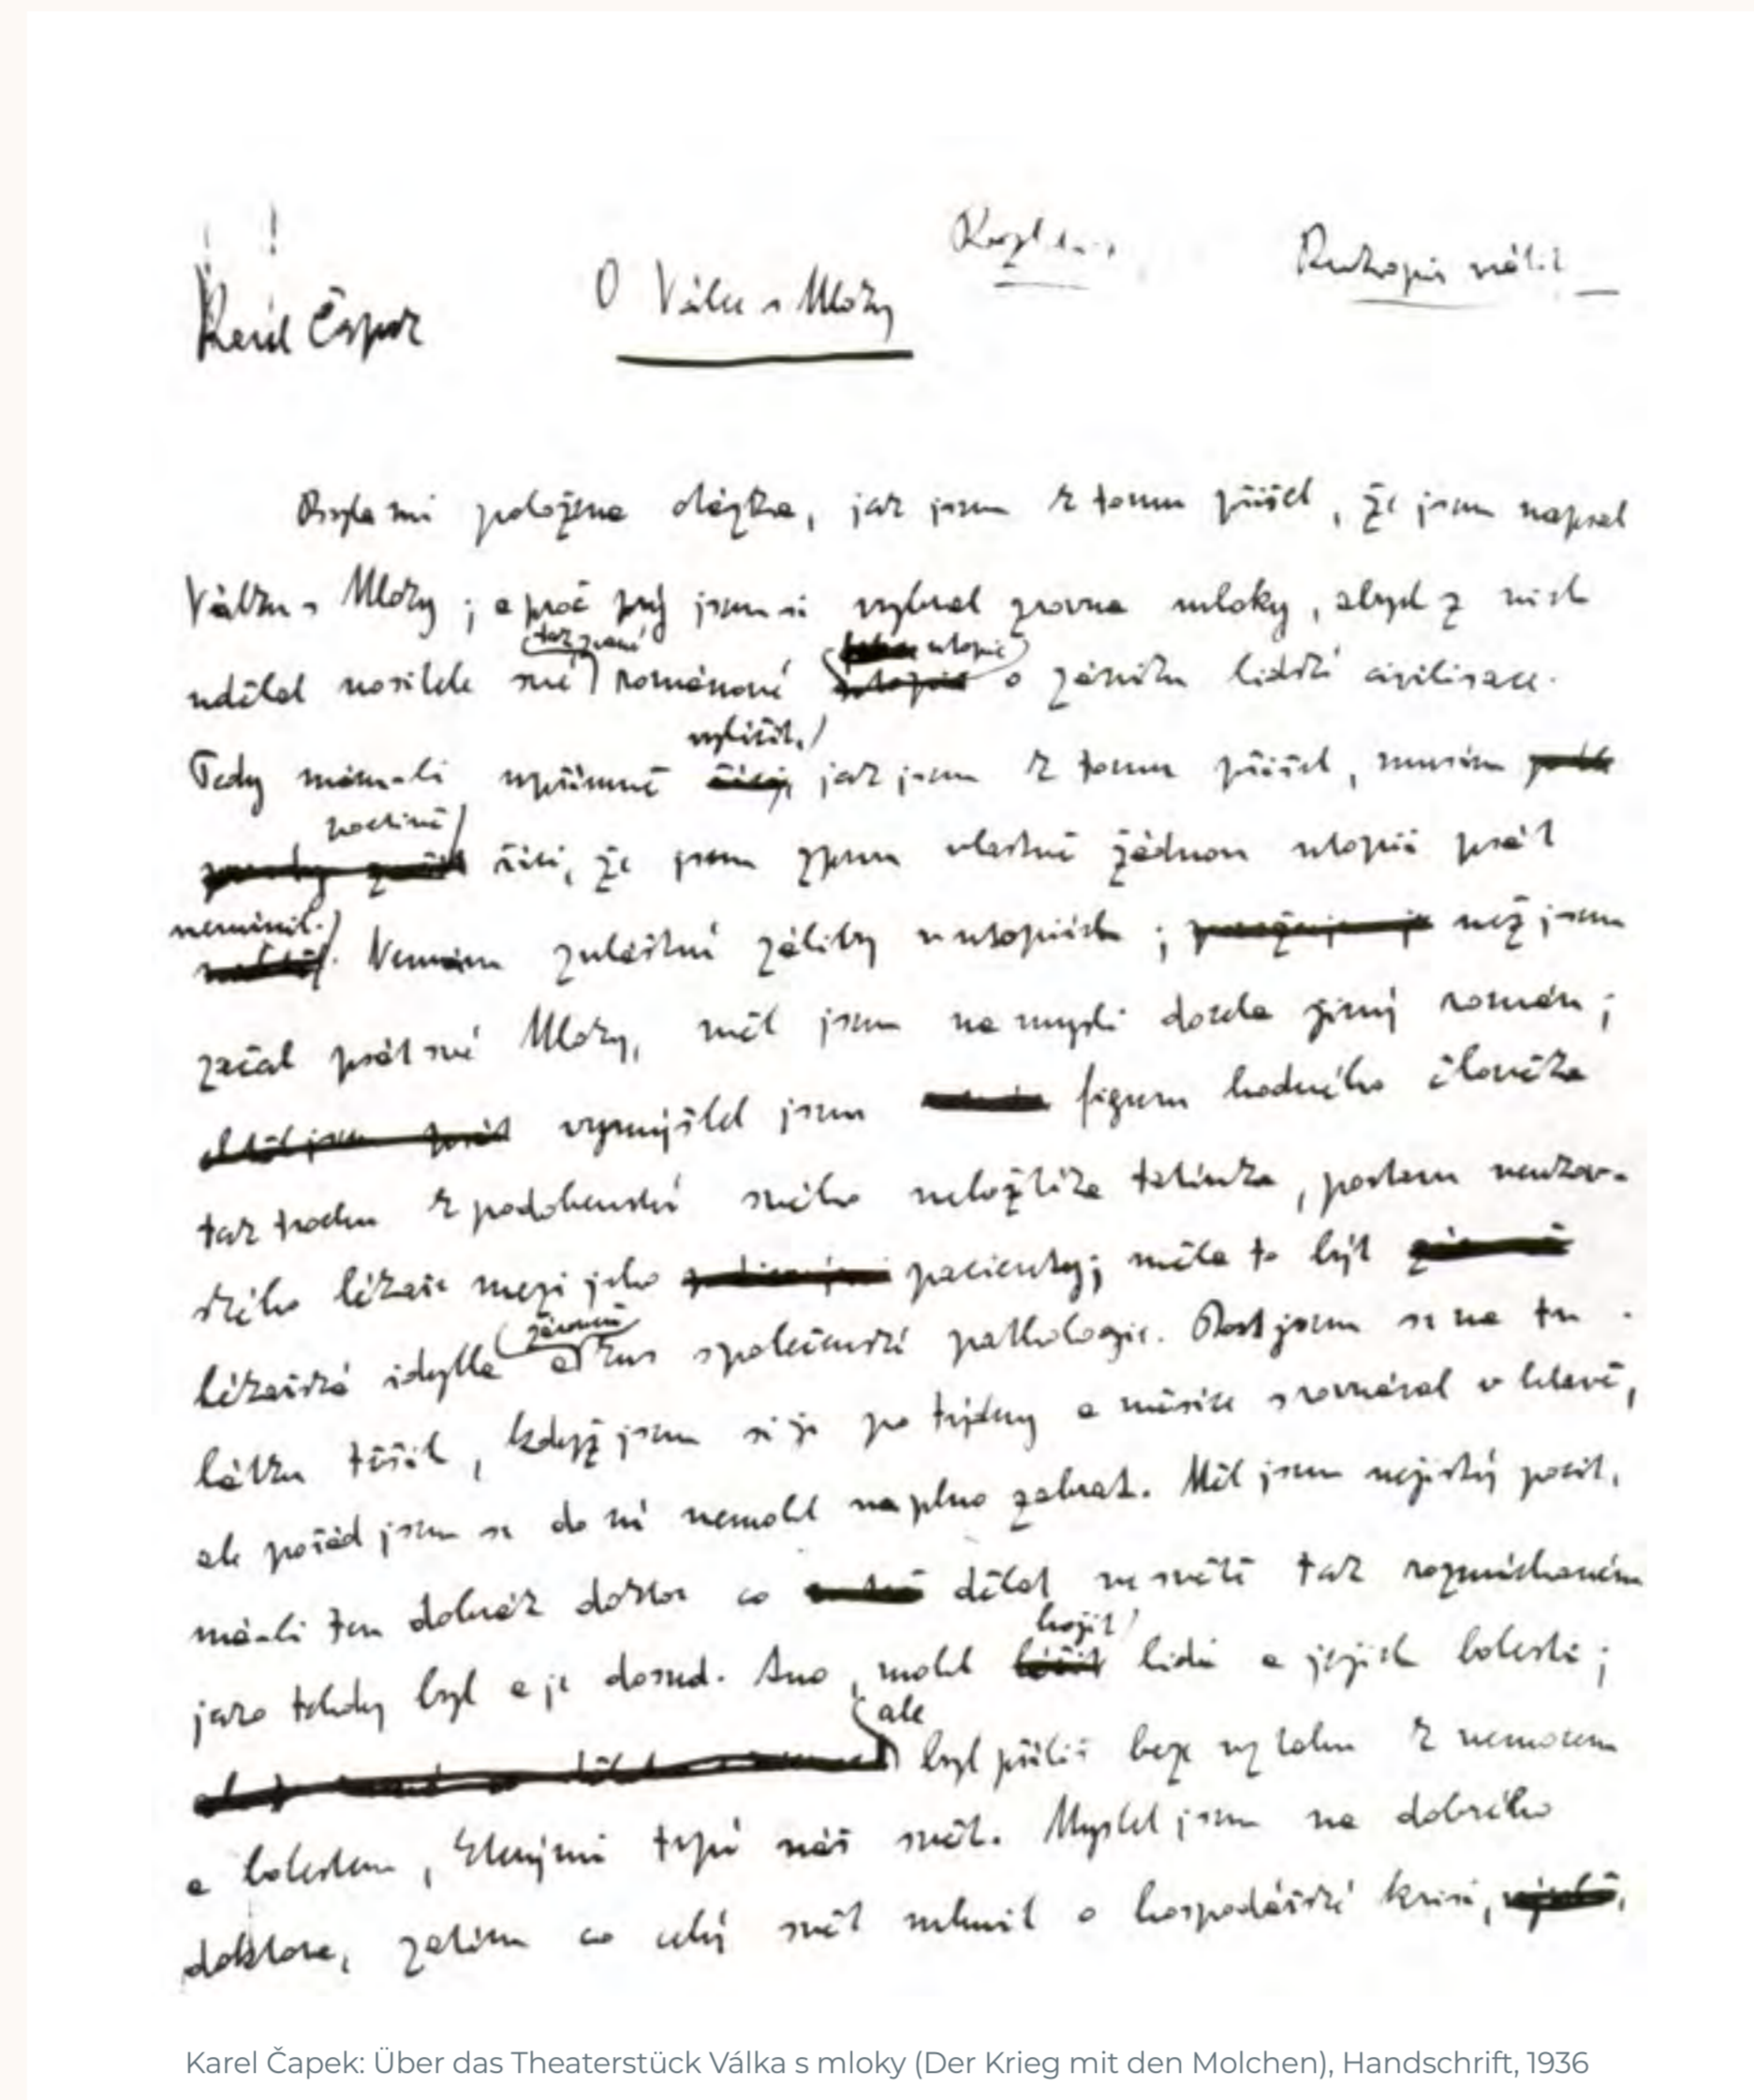 Karel Čapek
O Válce s Mloky
Rozhlas
Rukopis vrátit
Byla mi položena otázka, jak jsem k tomu přišel, že jsem napsal
Válku s Mloky; a proč prý jsem si vybral zrovna mloky, abych z nich
tak zvané utopie
udělal nositele své románové o zániku lidské civilisace.
vylíčit,
Tedy mám-li upřímně jak jsem k tomu přišel, musím
poctivě
říci, že jsem zprvu vlastně žádnou utopii psát
nemínil.
Nemám zvláštní záliby v utopiích; než jsem
začal psát své Mloky, měl jsem na mysli docela jiný román;
vymýšlel jsem figuru hodného člověka
tak trochu k podobenství svého nebožtíka tatínka, postavu venkov-
ského lékaře mezi jeho pacienty; měla to být
zároveň
lékařská idylla a kus společenské pathologie. Dost jsem se na tu
látku těšil, když jsem si ji po týdny a měsíce srovnával v hlavě,
ale pořád jsem se do ní nemohl naplno zabrat. Měl jsem nejistý pocit,
má-li ten dobrák doktor co dělat ve světě tak rozmíchaném
hojit
jako tehdy byl a je dosud. Ano, mohl lidi a jejich bolesti;
ale
byl příliš beze vztahu k nemocem
a bolestem, kterými trpí náš svět. Myslel jsem na dobrého
doktora, zatím co celý svět mluvil o hospodářské krisi,
Karel Čapek: Über das Theaterstück Válka s mloky (Der Krieg mit den Molchen), Handschrift, 1936